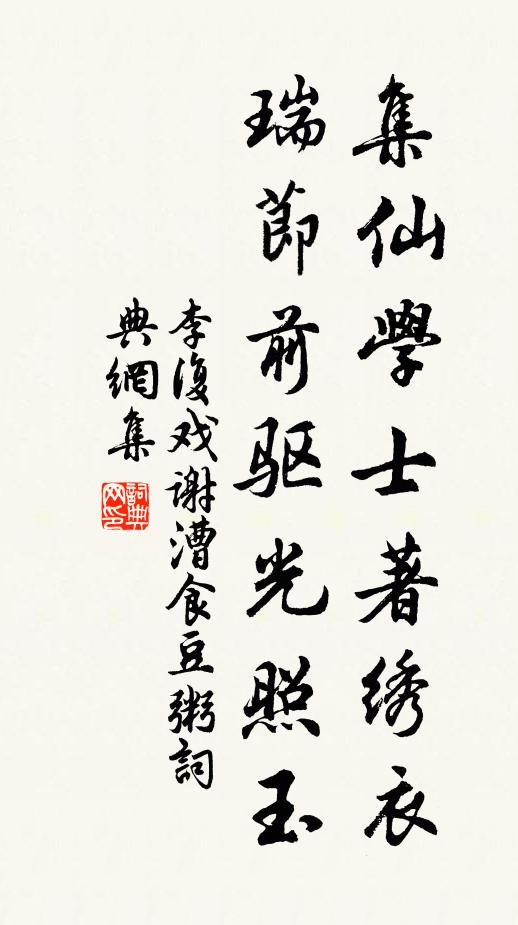 集仙學士著绣衣
瑞節前驱光照玉
李復戏谢漕食豆粥詞
典網集
詞典网印